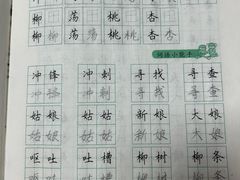 柳 荡 桃 杏
柳 荡 荡 桃 桃 杏 杏
词语小能手
冲锋 冲刺 寻找 寻查
冲锋 冲刺 寻找 寻查
姑姑 姑娘 新娘 大娘
姑姑 姑娘 新娘 大娘
呕吐 吐槽 柳树 柳条